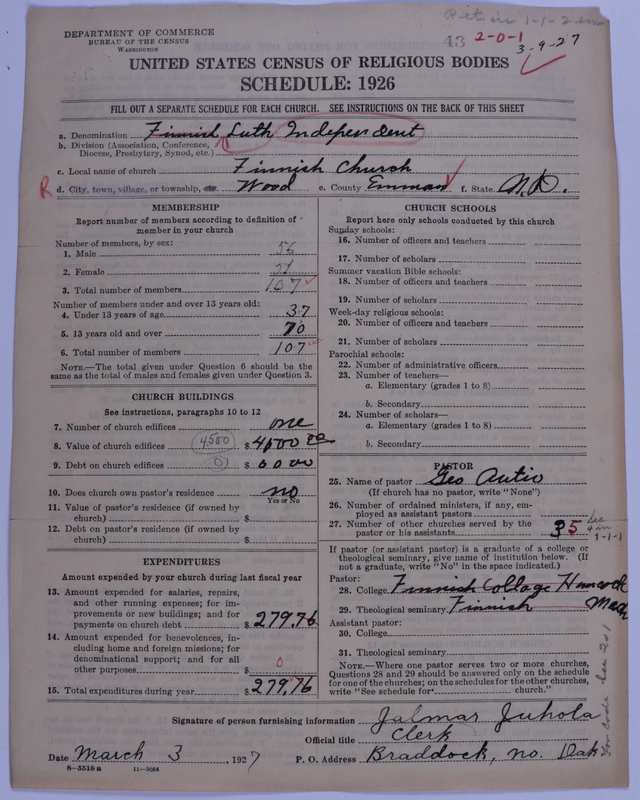 DEPARTMENT OF COMMERCE
BUREAU OF THE CENSUS
WASHINGTON
43 2-0-1
3-9-27
UNITED STATES CENSUS OF RELIGIOUS BODIES
SCHEDULE: 1926
FILL OUT A SEPARATE SCHEDULE FOR EACH CHURCH. SEE INSTRUCTIONS ON THE BACK OF THIS SHEET
a. Denomination Finnish Luth Independent
b. Division (Association, Conference,
Diocese, Presbytery, Synod, etc.)
c. Local name of church Finnish Church
R d. City, town, village, or township, etc. Wood e. County Emman f. State N.D.
MEMBERSHIP
Report number of members according to definition of
member in your church
Number of members, by sex:
1. Male 56
2. Female 51
3. Total number of members 107
Number of members under and over 13 years old:
4. Under 13 years of age 37
5. 13 years old and over 70
6. Total number of members 107
NOTE.—The total given under Question 6 should be
same as the total of males and females given under Question 3.
CHURCH BUILDINGS
See instructions, paragraphs 10 to 12
7. Number of church edifices one
8. Value of church edifices 4500 $
9. Debt on church edifices 0 $
10. Does church own pastor's residence no
Yes or No
11. Value of pastor's residence (if owned by
church) $
12. Debt on pastor's residence (if owned by
church) $
EXPENDITURES
Amount expended by your church during last fiscal year
13. Amount expended for salaries, repairs,
and other running expenses; for im-
provements or new buildings; and for
payments on church debt $ 279.76
14. Amount expended for benevolences, in-
cluding home and foreign missions; for
denominational support; and for all
other purposes $ 0
15. Total expenditures during year $ 279.76
CHURCH SCHOOLS
Report here only schools conducted by this church
Sunday schools:
16. Number of officers and teachers
17. Number of scholars
Summer vacation Bible schools:
18. Number of officers and teachers
19. Number of scholars
Week-day religious schools:
20. Number of officers and teachers
21. Number of scholars
Parochial schools:
22. Number of administrative officers
23. Number of teachers—
a. Elementary (grades 1 to 8)
b. Secondary
24. Number of scholars—
a. Elementary (grades 1 to 8)
b. Secondary
PASTOR
25. Name of pastor Geo Autio
(If church has no pastor, write "None")
26. Number of ordained ministers, if any, em-
ployed as assistant pastors
27. Number of other churches served by the
pastor or his assistants 5 See
4 in
1-1-1
If pastor (or assistant pastor) is a graduate of a college or
theological seminary, give name of institution below. (If
not a graduate, write "No" in the space indicated.)
Pastor:
28. College Finnish Collage Hancock
29. Theological seminary Finnish Mich
Assistant pastor:
30. College
31. Theological seminary
NOTE.—Where one pastor serves two or more churches,
Questions 28 and 29 should be answered only on the schedule
for one of the churches; on the schedules for the other churches,
write "See schedule for church."
Signature of person furnishing information Jalmar Juhola
Official title Clerk
Date March 3, 1927 P. O. Address Braddock, no. Dak
8—5518 a 11—9054